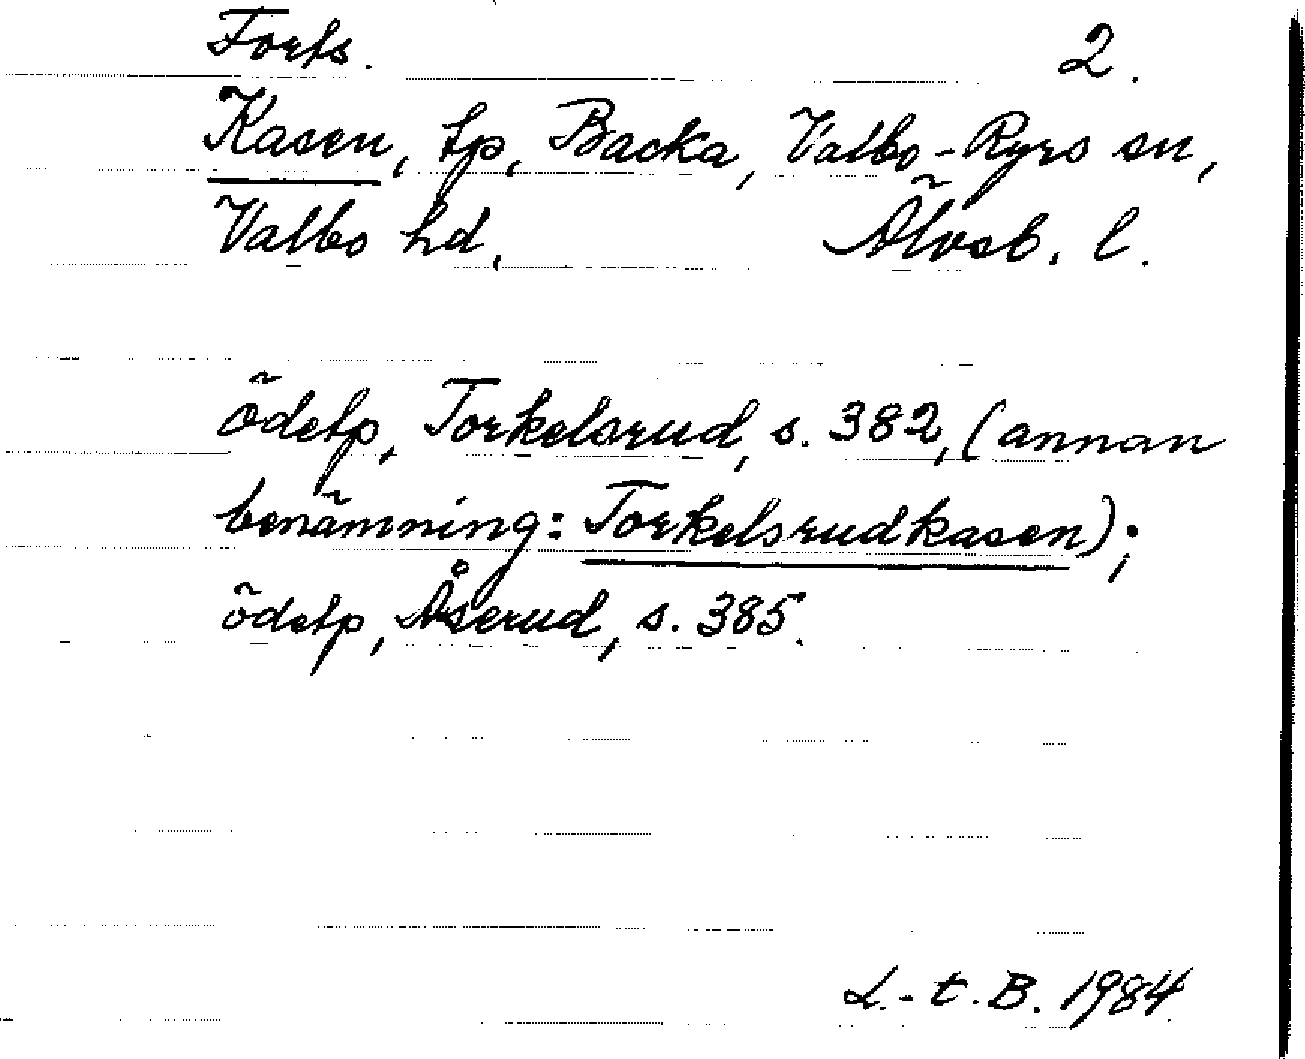 Forts. 2.
Kasen, tp, Backa, Valbo-Ryrs sn,
Valbo hd, Älvsb. l.
ödetp, Torkelsrud, s. 382, (annan
benämning: Torkelsrudkasen);
ödetp, Åserud, s. 385.
L.-t. B. 1984